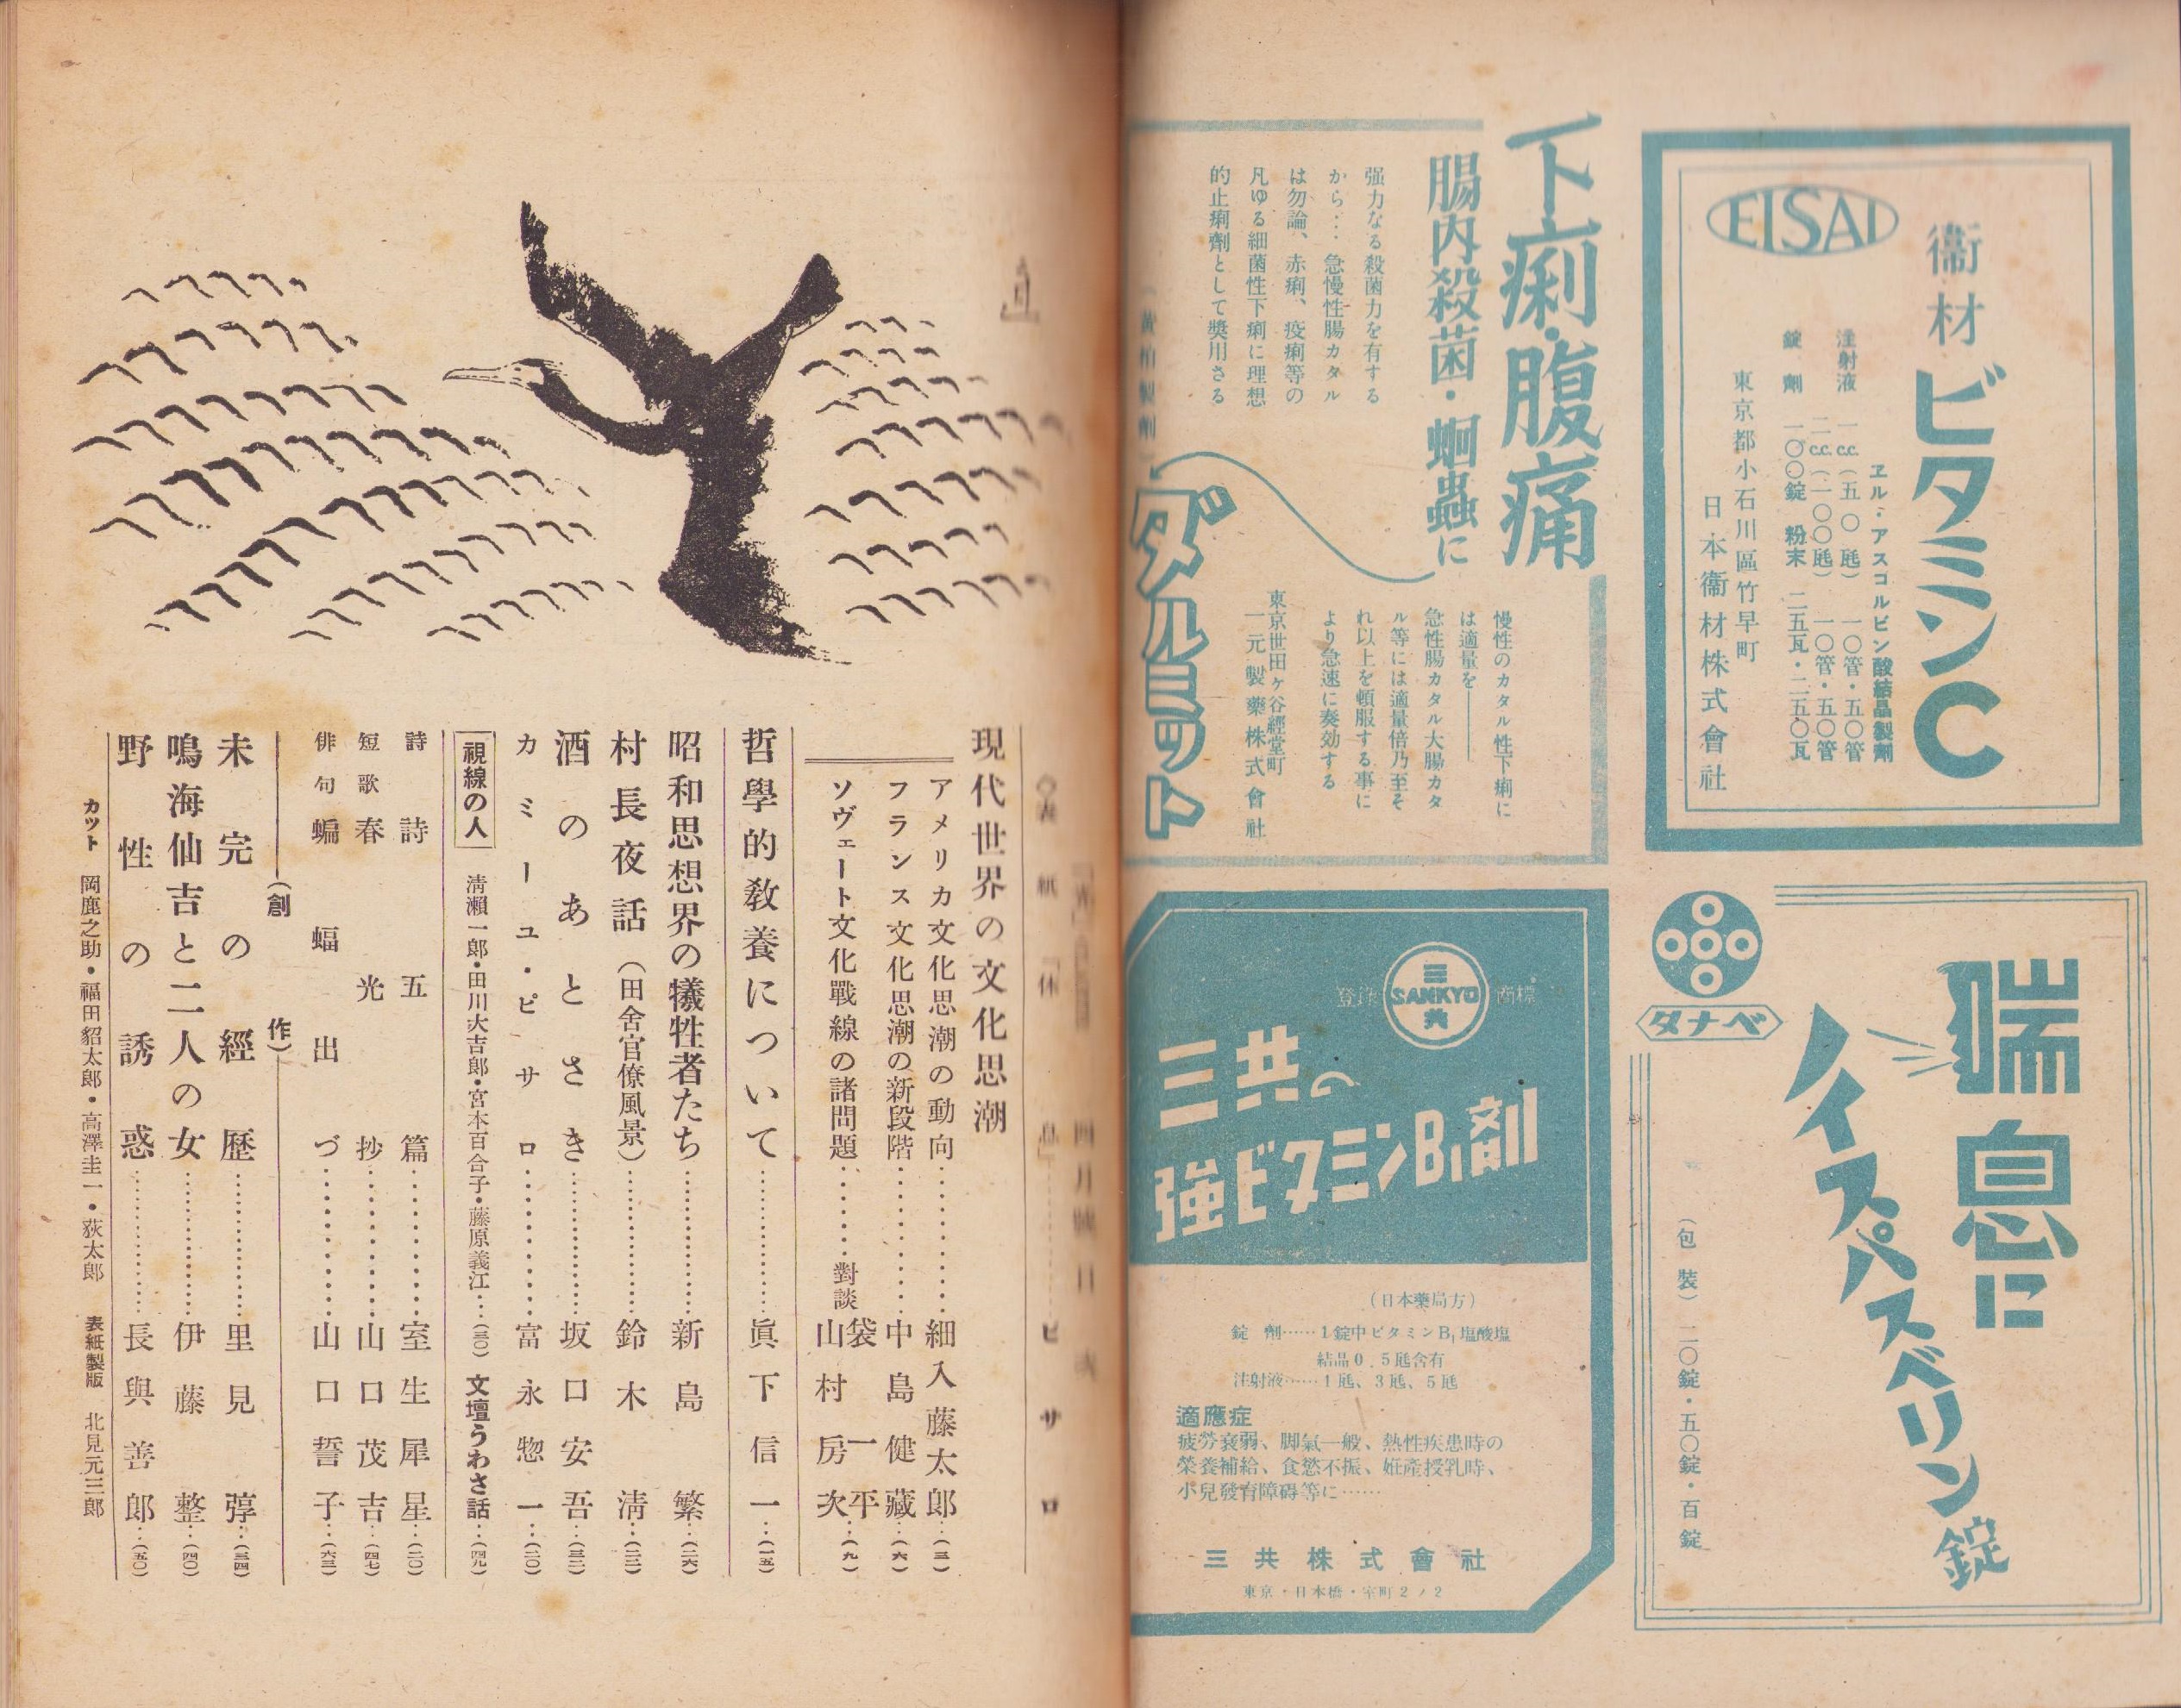 EISAI
衞材
ビタミンC
ヱル・アスコルビン酸結晶製劑
注射液 一cc.(五〇瓱) 一〇管・五〇管
二cc.(一〇〇瓱) 一〇管・五〇管
錠劑 一〇〇錠 粉末 二五瓦・二五〇瓦
東京都小石川區竹早町
日本衞材株式會社
下痢・腹痛
腸内殺菌・蛔蟲に
强力なる殺菌力を有する
から…急慢性腸カタル
は勿論、赤痢、疫痢等の
凡ゆる細菌性下痢に理想
的止痢劑として奬用さる
(黄柏製劑)
ダルミット
慢性のカタル性下痢に
は適量を――
急性腸カタル大腸カタ
ル等には適量倍乃至そ
れ以上を頓服する事に
より急速に奏効する
東京世田ヶ谷經堂町
一元製藥株式會社
タナベ
喘息に
ノイスパスベリン錠
(包裝) 二〇錠・五〇錠・百錠
登錄 商標
三
SANKYO
共
三共の
強ビタミンB₁剤
(日本藥局方)
錠 劑……1錠中ビタミンB₁塩酸塩
結晶0.5瓱含有
注射液……1瓱、3瓱、5瓱
適應症
疲勞衰弱、脚氣一般、熱性疾患時の
榮養補給、食慾不振、姙產授乳時、
小兒發育障碍等に……
三共株式會社
東京・日本橋・室町2ノ2
四月號目次
表紙「休息」……ピサロ
現代世界の文化思潮
アメリカ文化思潮の動向……細入藤太郎…(三)
フランス文化思潮の新段階……中島健藏…(六)
ソヴェート文化戰線の諸問題……對談 袋一平 山村房次…(九)
哲學的敎養について……眞下信一…(一五)
昭和思想界の犧牲者たち……新島繁…(二六)
村長夜話(田舍官僚風景)……鈴木淸…(二二)
酒のあとさき……坂口安吾…(三二)
カミーユ・ピサロ……富永惣一…(二〇)
視線の人 淸瀨一郎・田川大吉郎・宮本百合子・藤原義江…(三〇) 文壇うわさ話…(四九)
詩 詩五篇……室生犀星…(二〇)
短歌 春光抄……山口茂吉…(四七)
俳句 蝙蝠出づ……山口誓子…(六三)
(創作)
未完の經歷……里見弴…(三四)
鳴海仙吉と二人の女……伊藤整…(四〇)
野性の誘惑……長與善郎…(五〇)
カット 岡鹿之助・福田貂太郎・高澤圭一・荻太郎 表紙製版 北見元三郎